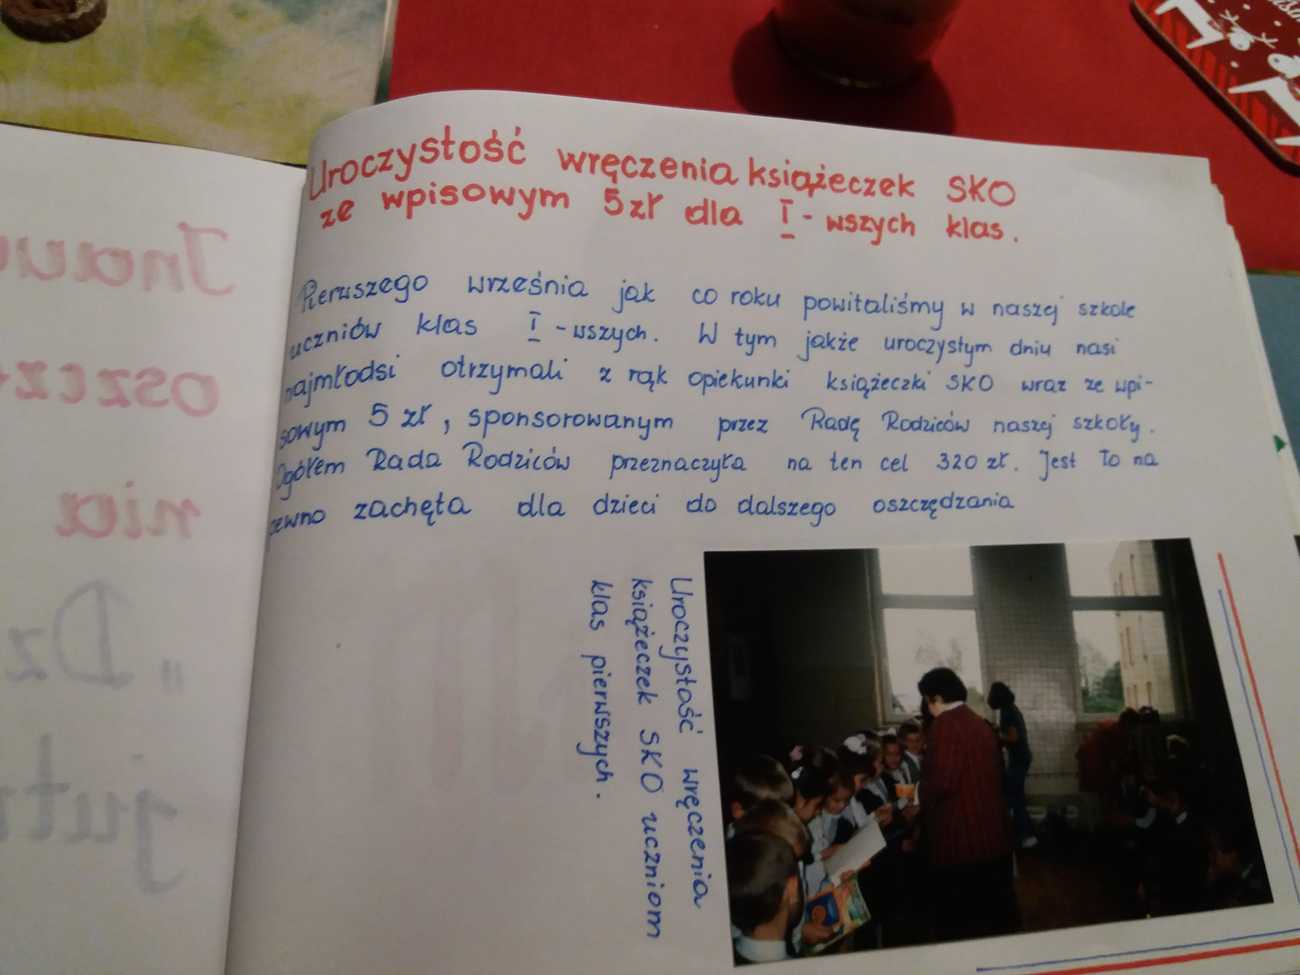 Uroczystość wręczenia książeczek SKO
ze wpisowym 5 zł dla I - wszych klas.
Pierwszego września jak co roku powitaliśmy w naszej szkole
uczniów klas I - wszych. W tym jakże uroczystym dniu nasi
najmłodsi otrzymali z rąk opiekunki książeczki SKO wraz ze wpi-
sowym 5 zł, sponsorowanym przez Radę Rodziców naszej szkoły.
Ogółem Rada Rodziców przeznaczyła na ten cel 320 zł. Jest To na
pewno zachęta dla dzieci do dalszego oszczędzania
Uroczystość wręczenia
książeczek SKO uczniom
klas pierwszych.